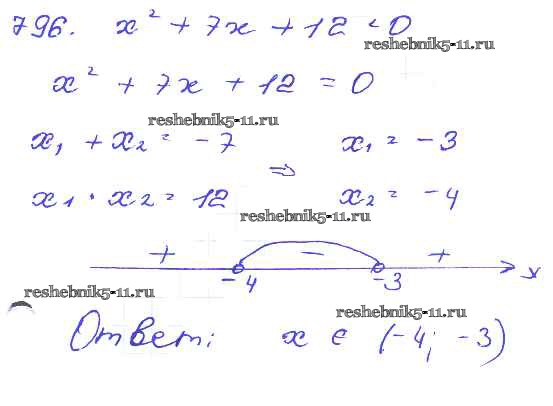 796. x² + 7x + 12 < 0
reshebnik5-11.ru
x² + 7x + 12 = 0
reshebnik5-11.ru
x₁ + x₂ = -7 x₁ = -3
⇒
x₁ · x₂ = 12 x₂ = -4
reshebnik5-11.ru
+ - +
-4 -3 x
reshebnik5-11.ru
reshebnik5-11.ru
Ответ: x ∈ (-4; -3)